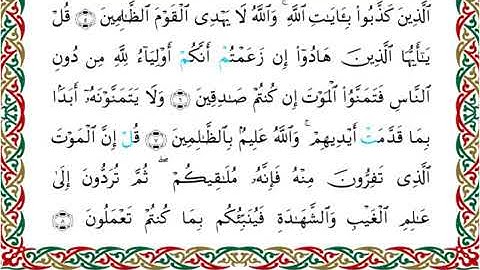 ٱلَّذِينَ كَذَّبُوا۟ بِـَٔايَـٰتِ ٱللَّهِ ۚ وَٱللَّهُ لَا يَهْدِى ٱلْقَوْمَ ٱلظَّـٰلِمِينَ ۝٥ قُلْ
يَـٰٓأَيُّهَا ٱلَّذِينَ هَادُوٓا۟ إِن زَعَمْتُمْ أَنَّكُمْ أَوْلِيَآءُ لِلَّهِ مِن دُونِ
ٱلنَّاسِ فَتَمَنَّوُا۟ ٱلْمَوْتَ إِن كُنتُمْ صَـٰدِقِينَ ۝٦ وَلَا يَتَمَنَّوْنَهُۥٓ أَبَدًۢا
بِمَا قَدَّمَتْ أَيْدِيهِمْ ۚ وَٱللَّهُ عَلِيمٌۢ بِٱلظَّـٰلِمِينَ ۝٧ قُلْ إِنَّ ٱلْمَوْتَ
ٱلَّذِى تَفِرُّونَ مِنْهُ فَإِنَّهُۥ مُلَـٰقِيكُمْ ۖ ثُمَّ تُرَدُّونَ إِلَىٰ
عَـٰلِمِ ٱلْغَيْبِ وَٱلشَّهَـٰدَةِ فَيُنَبِّئُكُم بِمَا كُنتُمْ تَعْمَلُونَ ۝٨